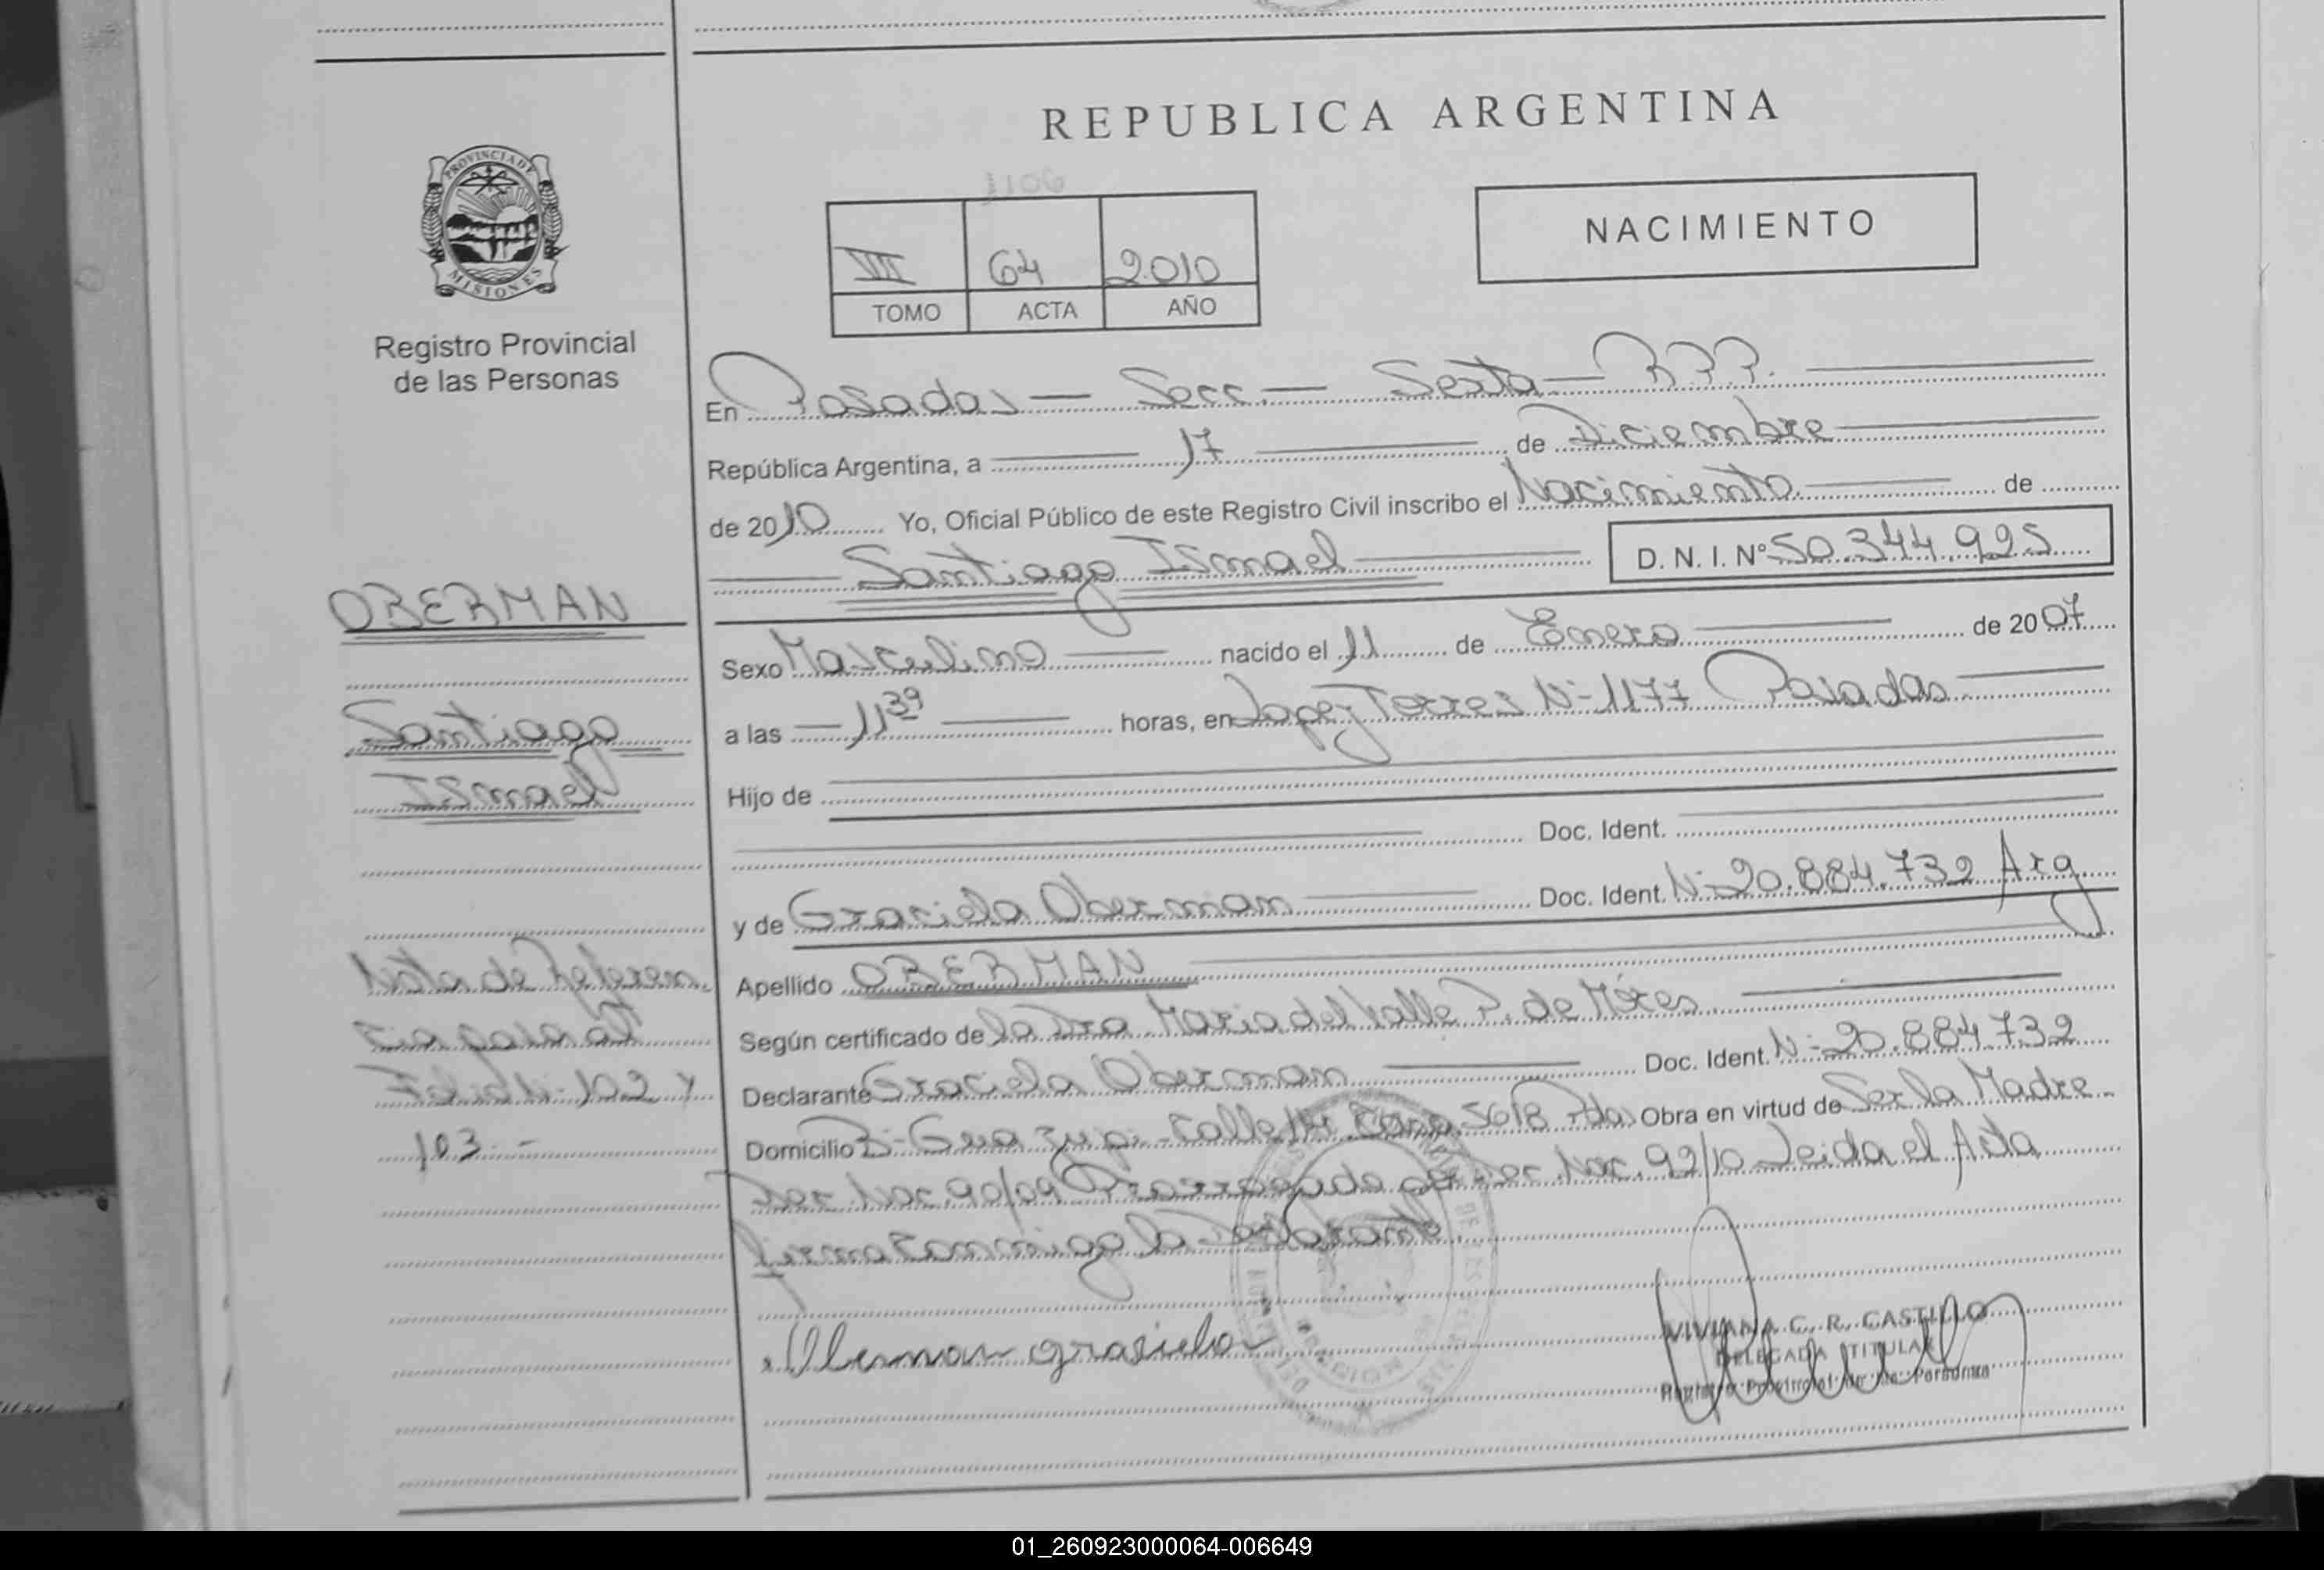 REPUBLICA ARGENTINA
1106
PROVINCIA DE
MISIONES
Registro Provincial
de las Personas
VII 64 2010
TOMO ACTA AÑO
NACIMIENTO
En Posadas — Secc. — Sexta — R.P.P.
República Argentina, a 17 de Diciembre
de 2010 Yo, Oficial Público de este Registro Civil inscribo el Nacimiento de
Santiago Ismael D. N. I. Nº 50.344.925
OBERMAN
Santiago
Ismael
Sexo Masculino nacido el 11 de Enero de 2007
a las — 11 39 horas, en Lopez Torres Nº 1177 Posadas
Hijo de
Doc. Ident.
y de Graciela Oberman Doc. Ident. Nº 20.884.732 Arg
Apellido OBERMAN
Según certificado de la Dra Maria del Valle P. de
Declarante Graciela Oberman Doc. Ident. Nº 20.884.732
Domicilio Obra en virtud de Ser la Madre
92/10 Leida el Acta
Nota de Referen.
103 -
Oberman grasiela
VIVIANA C. R. CASTILLO
DELEGADA TITULAR
Registro Provincial de las Personas
01_260923000064-006649